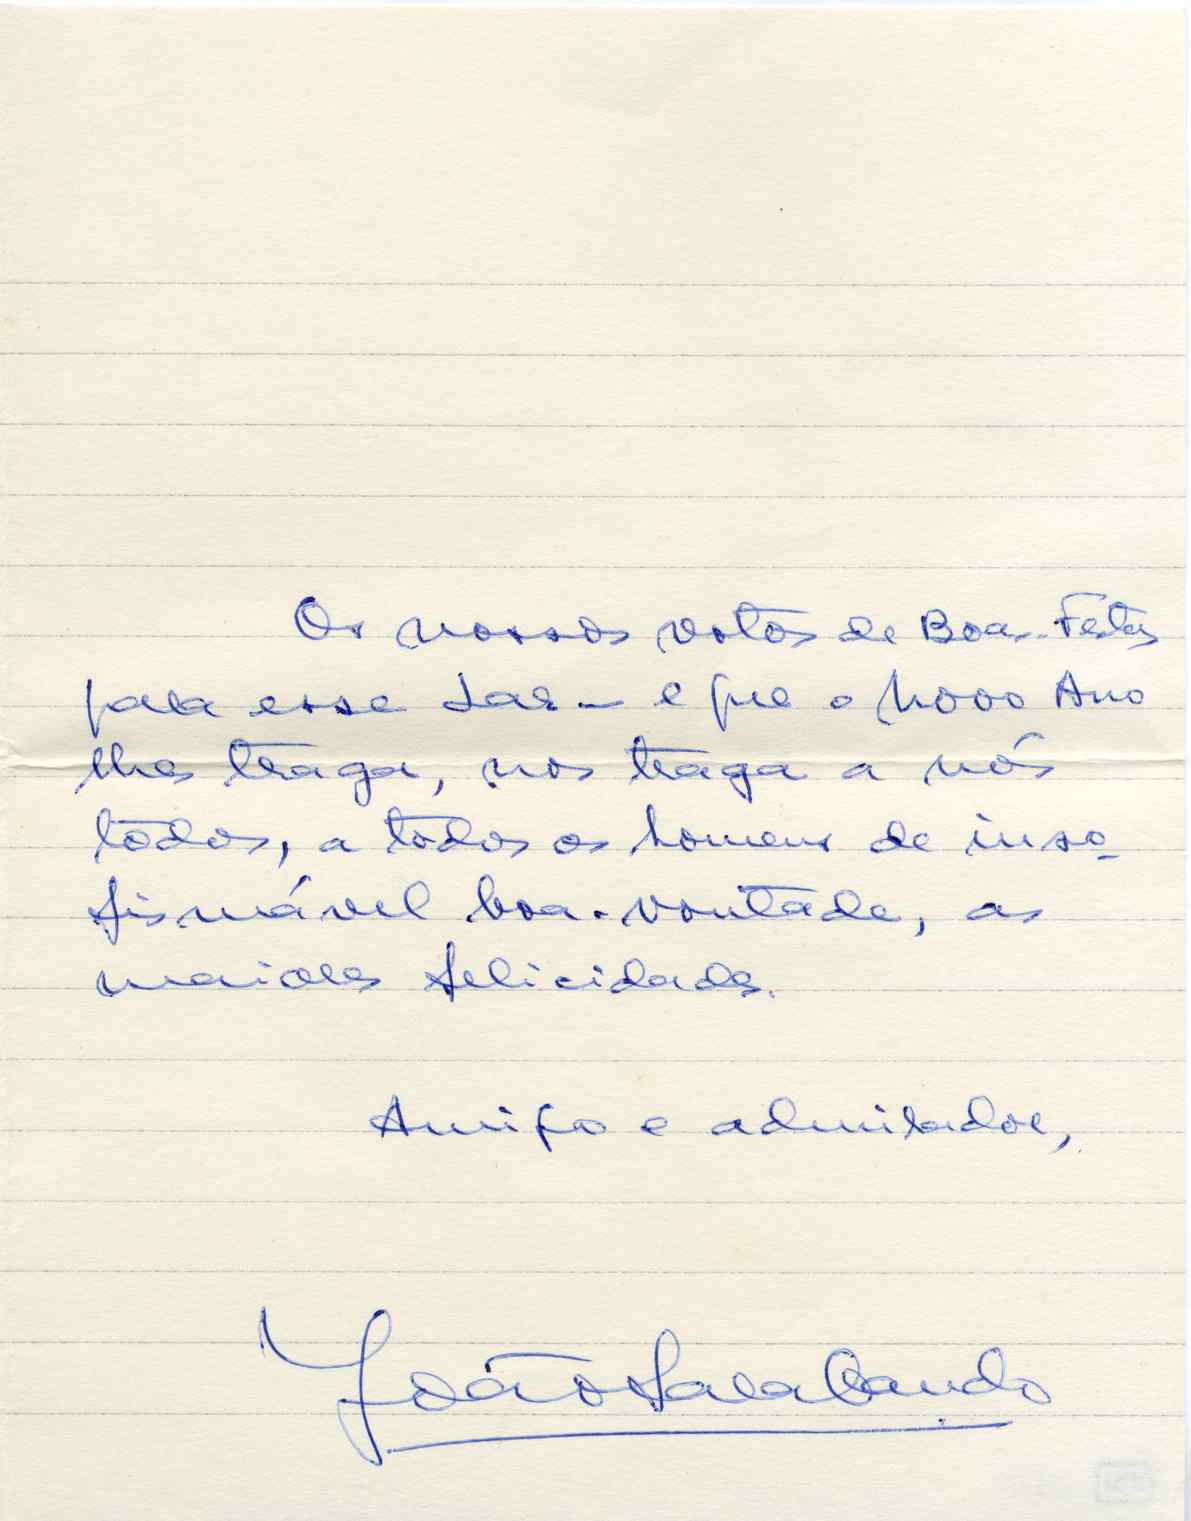 Os nossos votos de Boas-Festas
para esse Lar — e que o Novo Ano
lhes traga, nos traga a nós
todos, a todos os homens de inso-
fismável boa-vontade, as
maiores felicidades.
Amigo e admirador,
João Sarabando